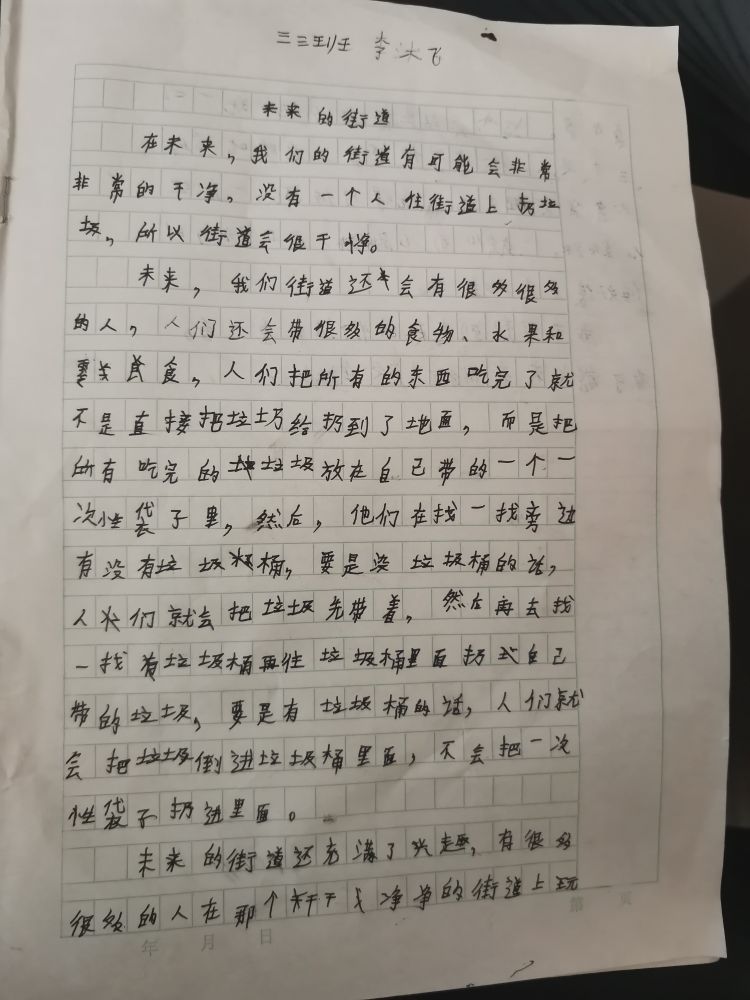 三三班 李沐飞
未来的街道
在未来,我们的街道有可能会非常
非常的干净。没有一个人往街道上扔垃
圾,所以街道会很干净。
未来,我们街道还会有很多很多
的人,人们还会带很多的食物、水果和
美食,人们把所有的东西吃完了就
不是直接把垃圾给扔到了地面,而是把
所有吃完的垃圾放在自己带的一个一
次性袋子里,然后,他们在找一找旁边
有没有垃圾桶,要是没垃圾桶的话,
人们就会把垃圾先带着,然后再去找
一找有垃圾桶再往垃圾桶里面扔自己
带的垃圾,要是有垃圾桶的话,人们就
会把垃圾倒进垃圾桶里面,不会把一次
性袋子扔进里面。
未来的街道还充满了兴趣,有很多
很多的人在那个干净的街道上玩
年 月 日
第 页